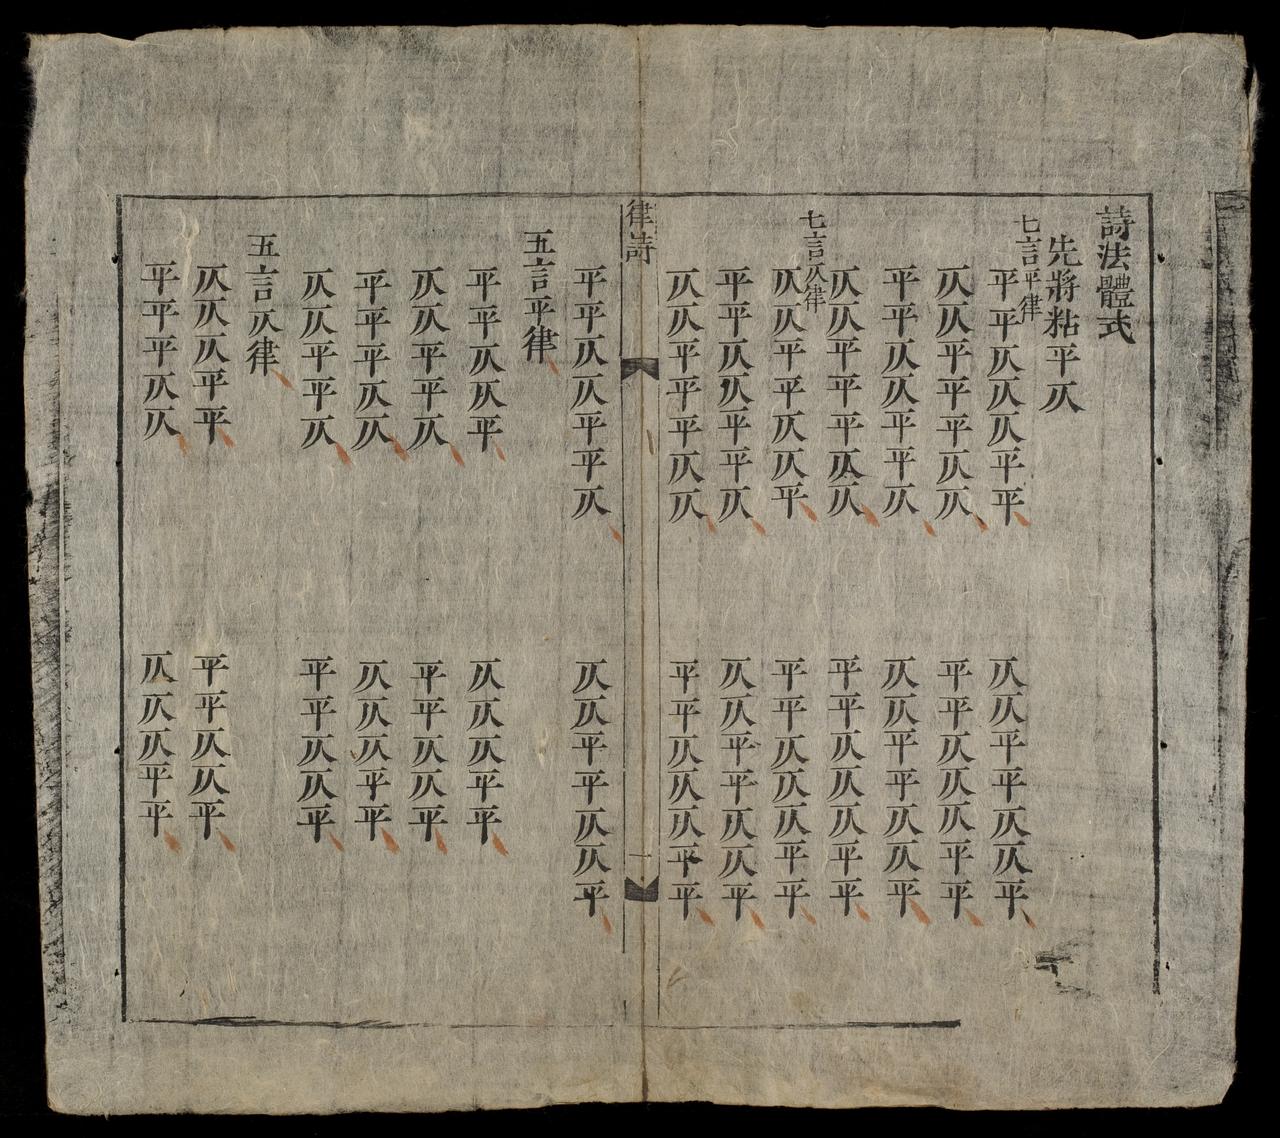 詩法體式
先將粘平仄
七言平律
平平仄仄仄平平
仄仄平平仄仄平
仄仄平平平仄仄
平平仄仄仄平平
平平仄仄平平仄
仄仄平平仄仄平
仄仄平平平仄仄
平平仄仄仄平平
七言仄律
仄仄平平仄仄平
平平仄仄仄平平
平平仄仄平平仄
仄仄平平仄仄平
仄仄平平平仄仄
平平仄仄仄平平
律詩
一
平平仄仄平平仄
仄仄平平仄仄平
五言平律
平平仄仄平
仄仄仄平平
仄仄平平仄
平平仄仄平
平平平仄仄
仄仄仄平平
仄仄平平仄
平平仄仄平
五言仄律
仄仄仄平平
平平仄仄平
平平平仄仄
仄仄仄平平